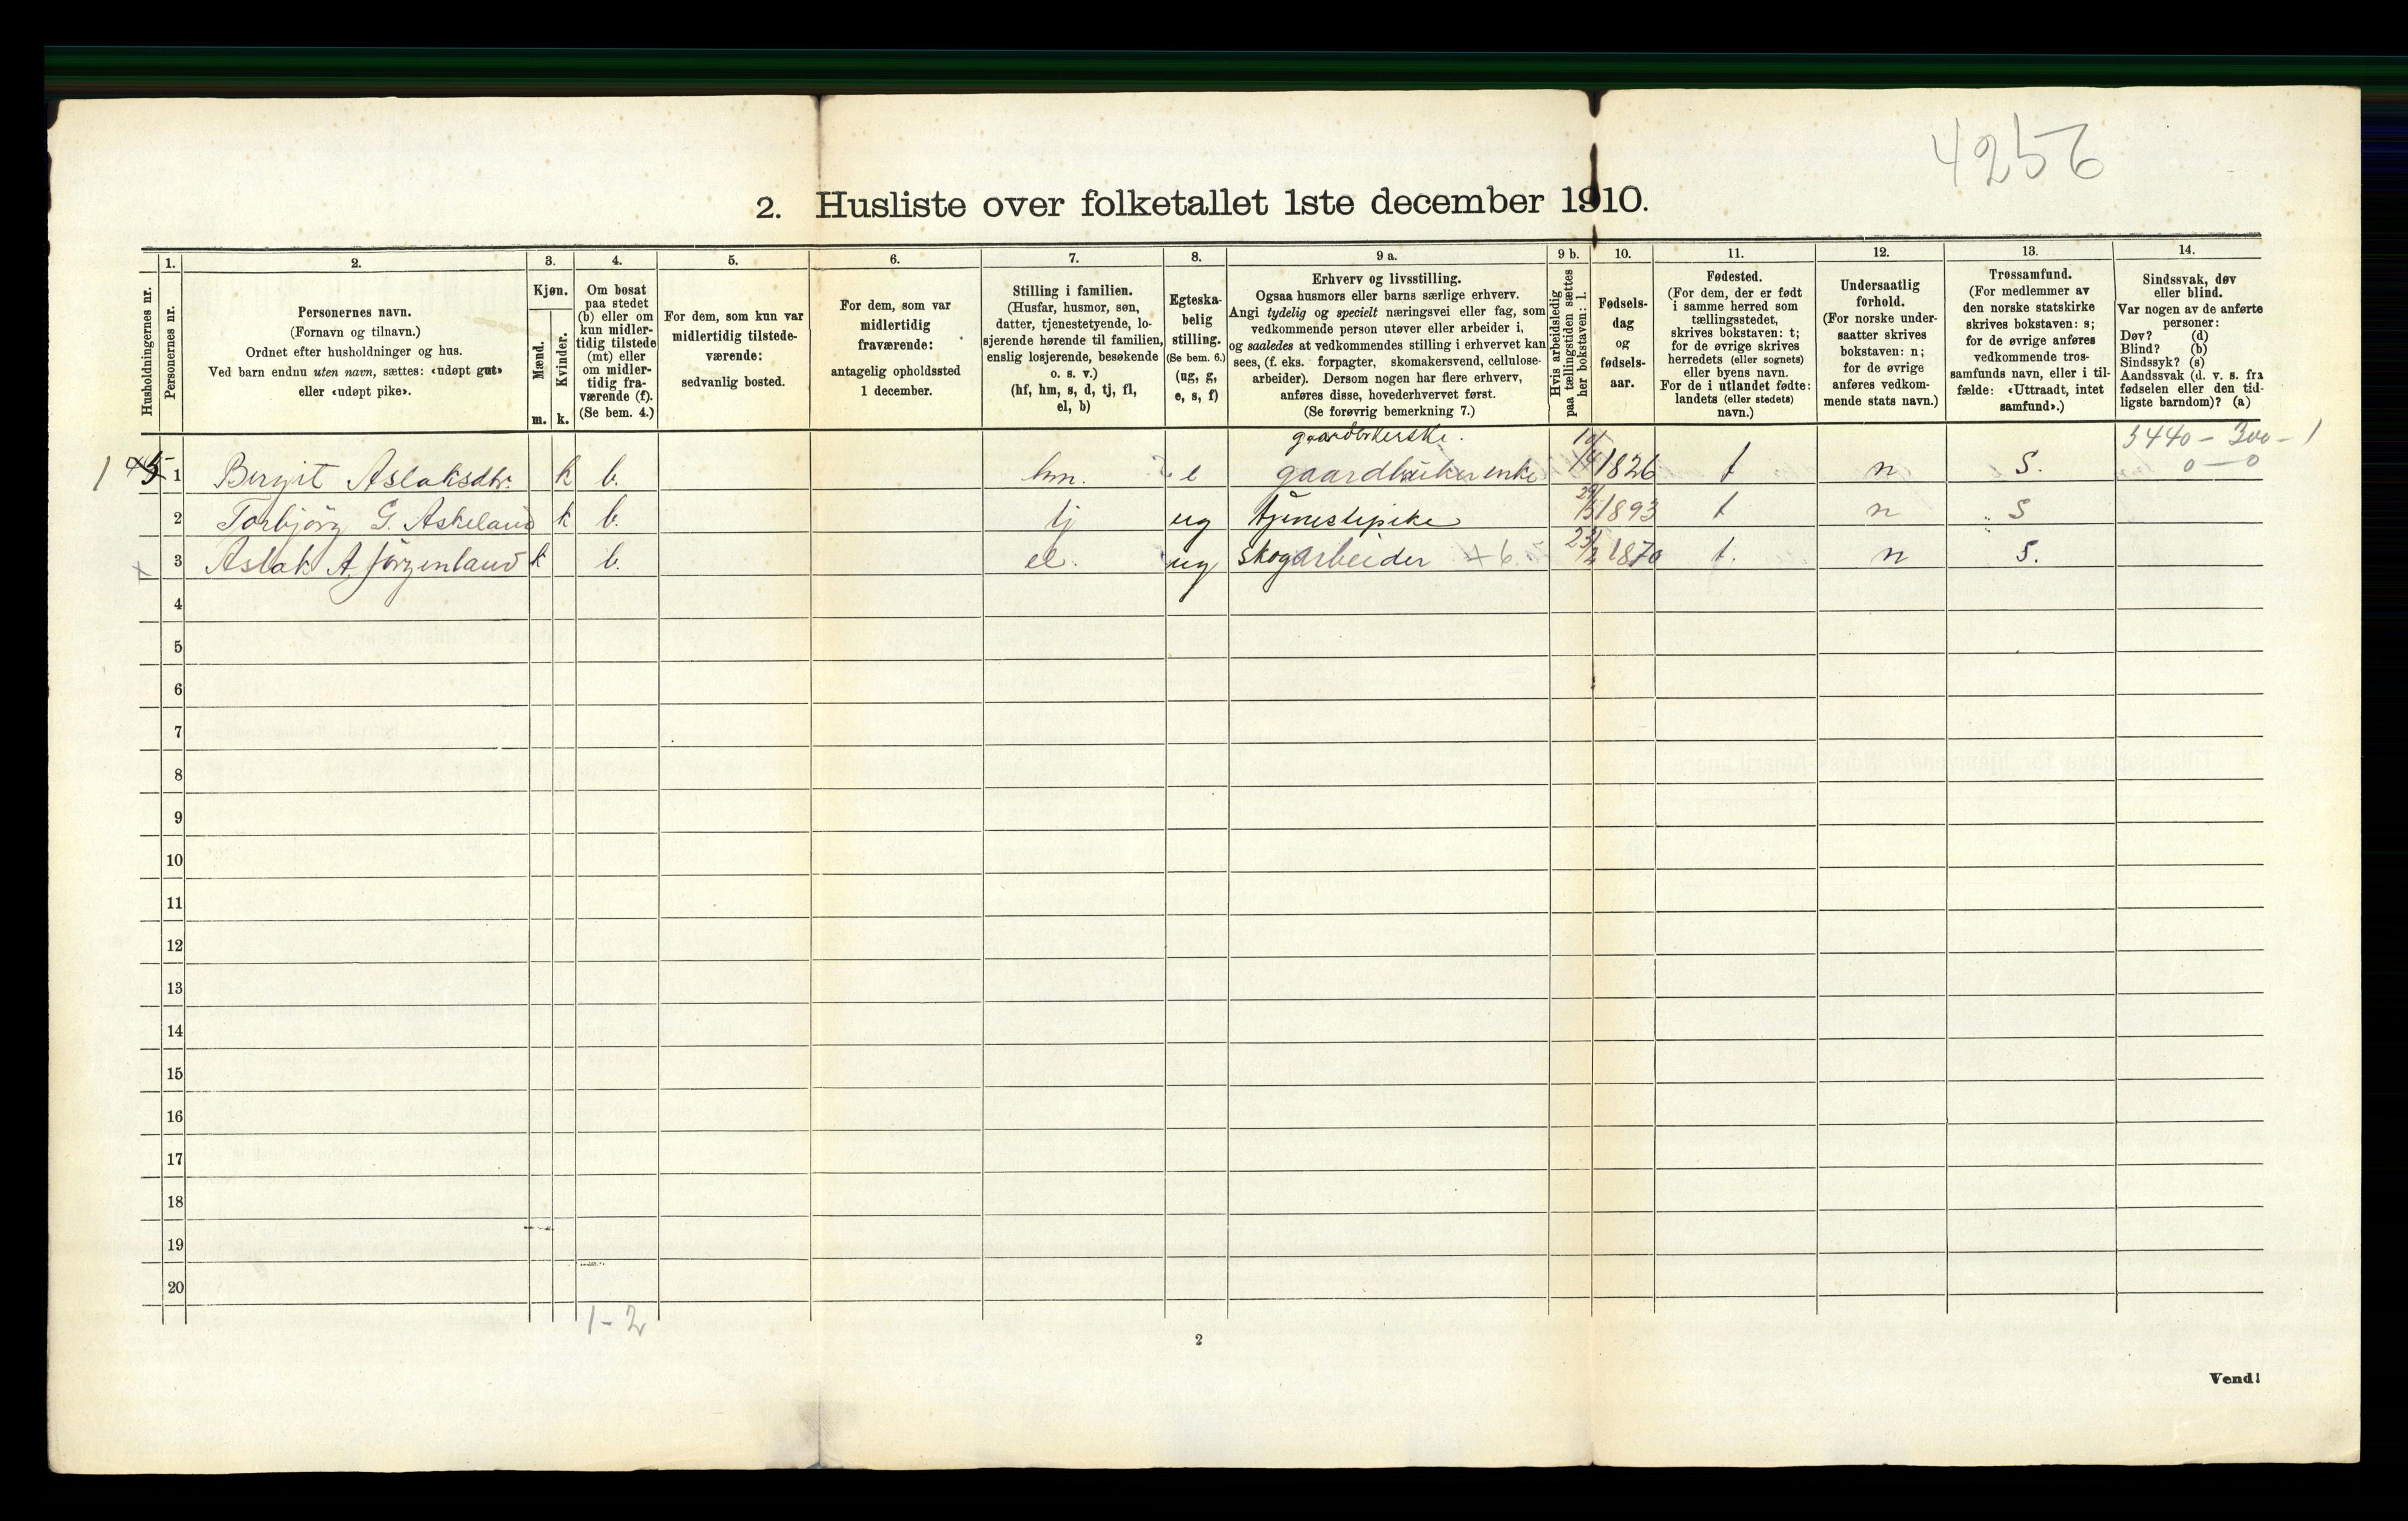 4256
2. Husliste over folketallet 1ste december 1910.
Husholdningernes nr.
1.
Personernes nr.
2.
Personernes navn.
(Fornavn og tilnavn.)
Ordnet efter husholdninger og hus.
Ved barn endnu uten navn, sættes: «udøpt gut»
eller «udøpt pike».
3.
Kjøn.
Mænd.
Kvinder.
m. k.
4.
Om bosat
paa stedet
(b) eller om
kun midler-
tidig tilstede
(mt) eller
om midler-
tidig fra-
værende (f).
(Se bem. 4.)
5.
For dem, som kun var
midlertidig tilstede-
værende:
sedvanlig bosted.
6.
For dem, som var
midlertidig
fraværende:
antagelig opholdssted
1 december.
7.
Stilling i familien.
(Husfar, husmor, søn,
datter, tjenestetyende, lo-
sjerende hørende til familien,
enslig losjerende, besøkende
o. s. v.)
(hf, hm, s, d, tj, fl,
el, b)
8.
Egteska-
belig
stilling.
(Se bem. 6.)
(ug, g,
e, s, f)
9 a.
Erhverv og livsstilling.
Ogsaa husmors eller barns særlige erhverv.
Angi tydelig og specielt næringsvei eller fag, som
vedkommende person utøver eller arbeider i,
og saaledes at vedkommendes stilling i erhvervet kan
sees, (f. eks. forpagter, skomakersvend, cellulose-
arbeider). Dersom nogen har flere erhverv,
anføres disse, hovederhvervet først.
(Se forøvrig bemerkning 7.)
9 b.
Hvis arbeidsledig
paa tællingstiden sættes
her bokstaven: l.
10.
Fødsels-
dag
og
fødsels-
aar.
11.
Fødested.
(For dem, der er født
i samme herred som
tællingsstedet,
skrives bokstaven: t;
for de øvrige skrives
herredets (eller sognets)
eller byens navn.
For de i utlandet fødte:
landets (eller stedets)
navn.)
12.
Undersaatlig
forhold.
(For norske under-
saatter skrives
bokstaven: n;
for de øvrige
anføres vedkom-
mende stats navn.)
13.
Trossamfund.
(For medlemmer av
den norske statskirke
skrives bokstaven: s;
for de øvrige anføres
vedkommende tros-
samfunds navn, eller i til-
fælde: «Uttraadt, intet
samfund».)
14.
Sindssvak, døv
eller blind.
Var nogen av de anførte
personer:
Døv? (d)
Blind? (b)
Sindssyk? (s)
Aandssvak (d. v. s. fra
fødselen eller den tid-
ligste barndom)? (a)
gaardbrukerske. 3440 - 300 - 1
1 1 Birgit Aslaksdtr. k b. hm. e gaardbrukerenke 1826 t n S. 0 - 0
2 Torbjörg G. Askeland k b. tj ug tjenestepike 1893 t n S
x 3 Aslak A. Jörgenland b. el. ug skogarbeider 1870 t. n S.
4
5
6
7
8
9
10
11
12
13
14
15
16
17
18
19
20
1 - 2
2
Vend!